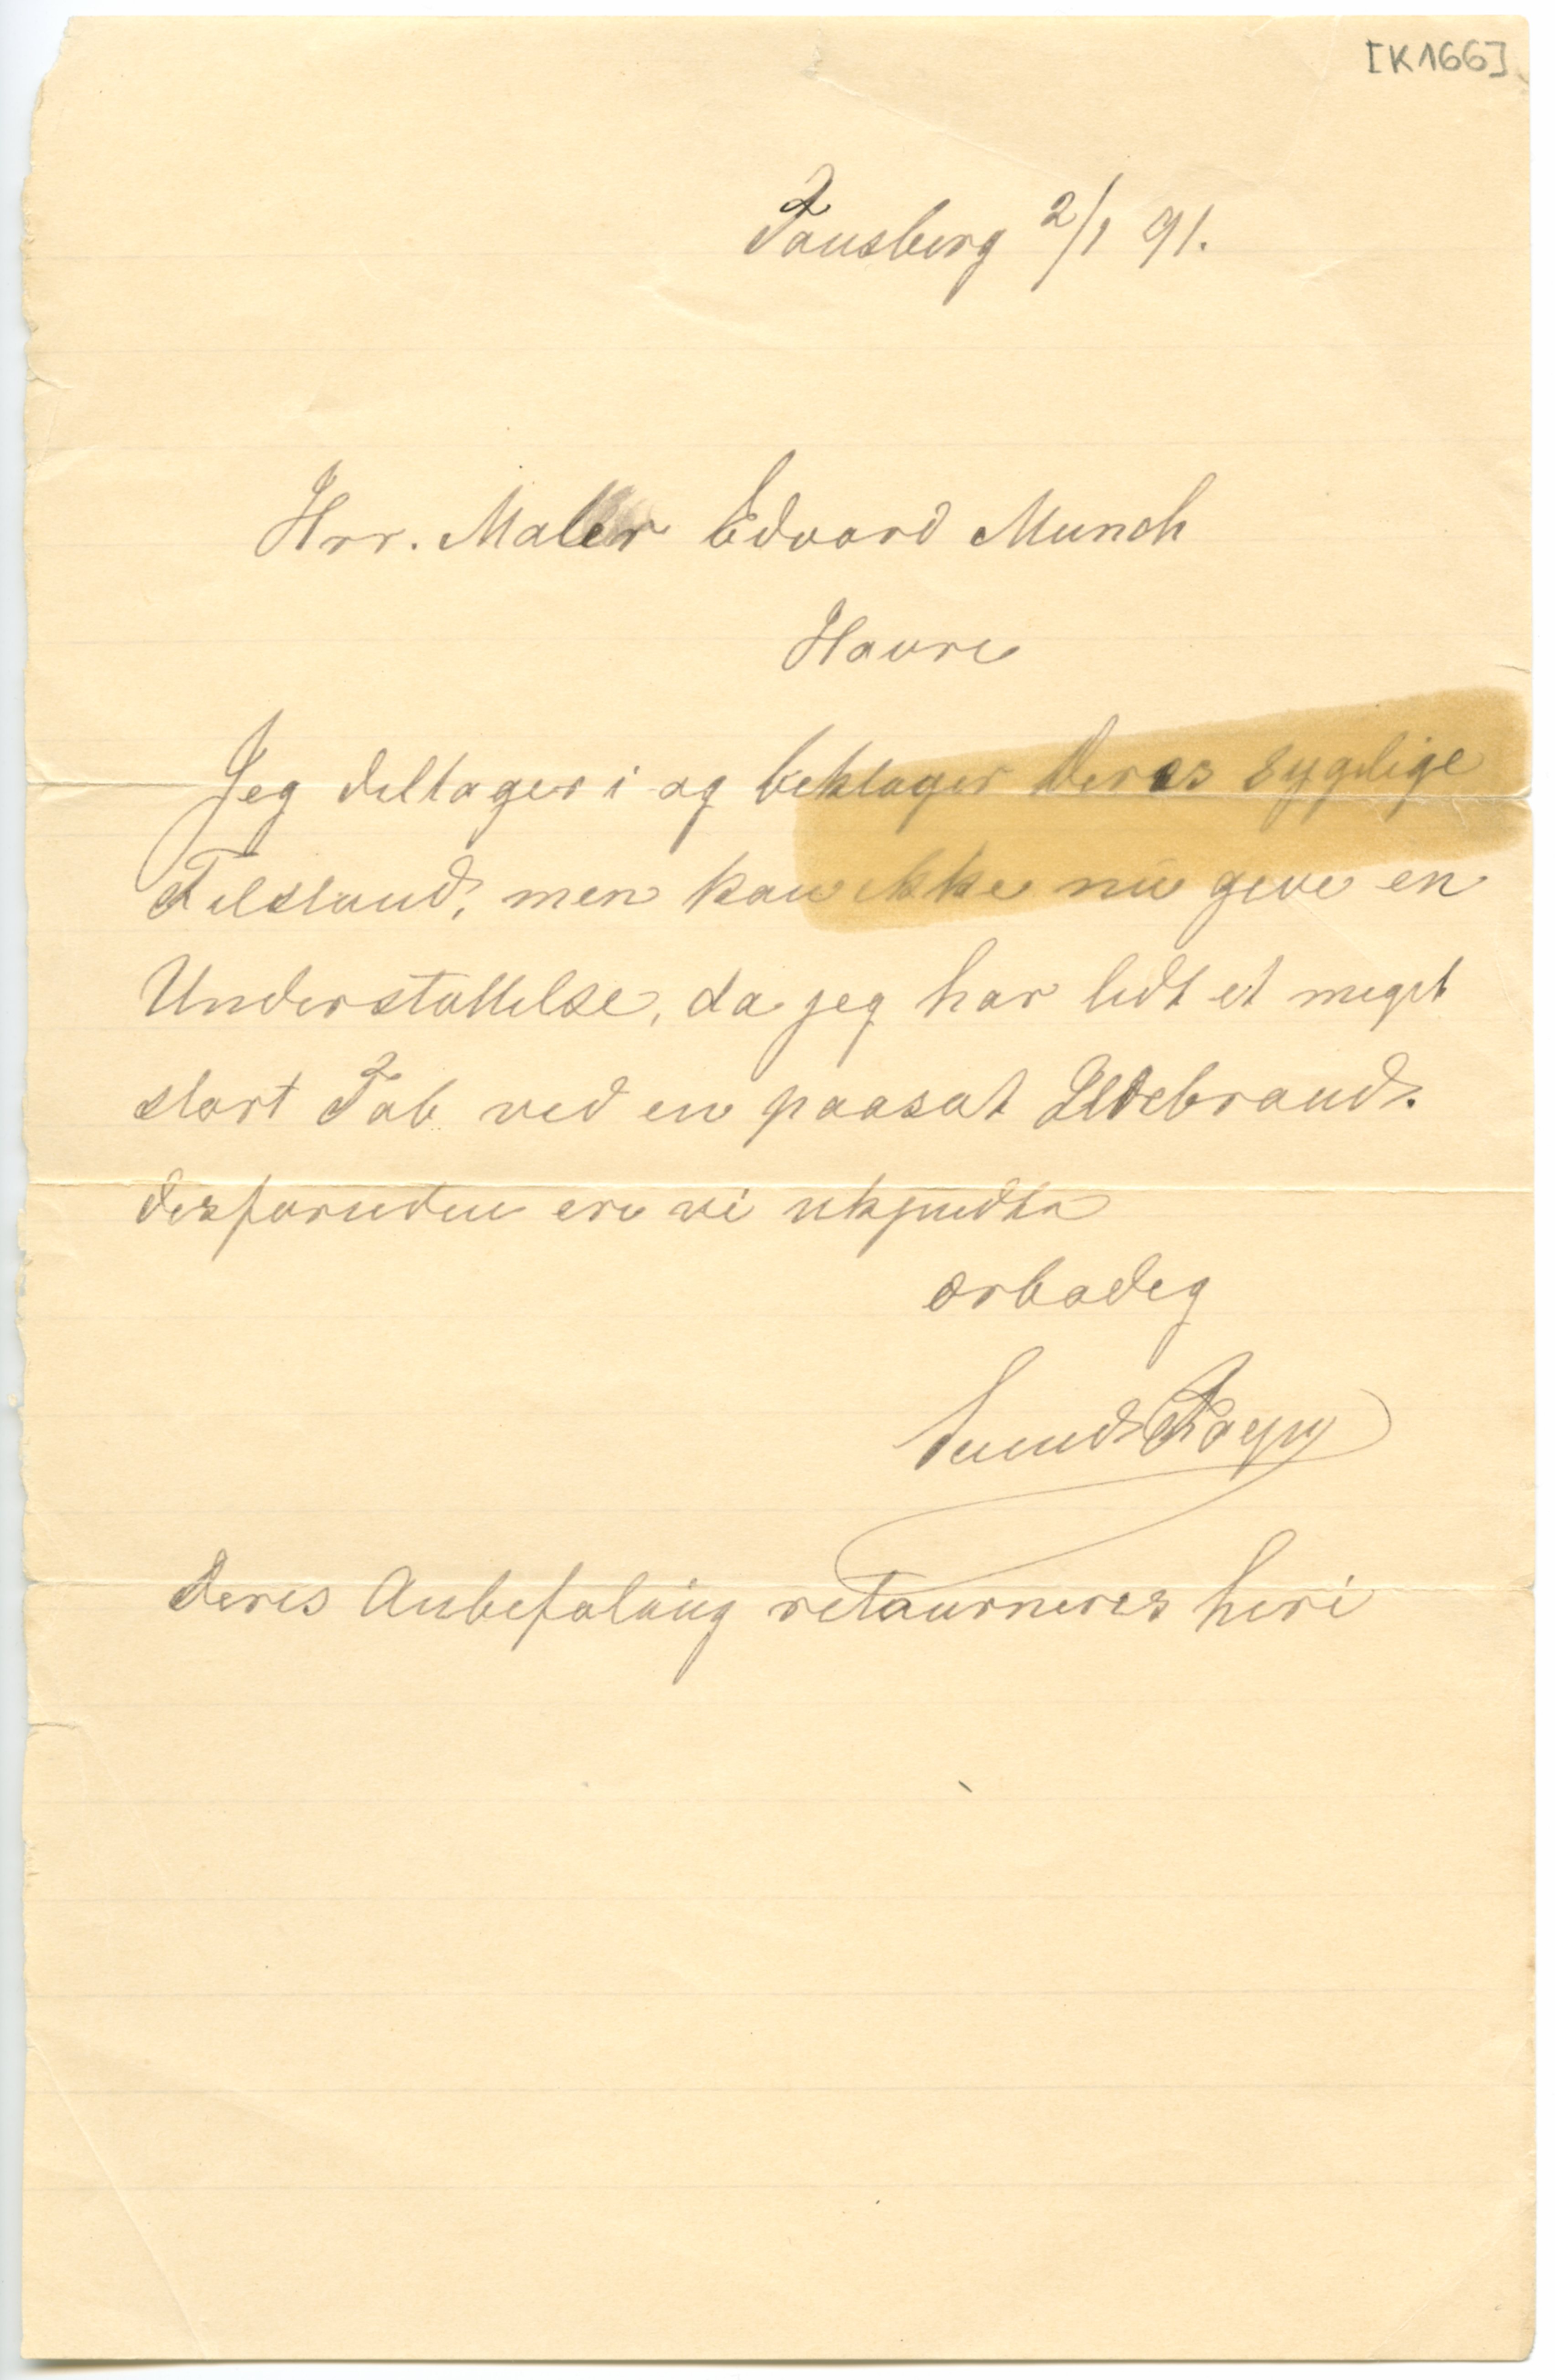 [K166]
Tønsberg 2/1 91.
Hrr. Maler Edvard Munch
Havre
Jeg deltager i og beklager Deres sygelige
Tilstand, men kan ikke nu give en
Understøttelse, da jeg har lidt et meget
stort Tab ved en paasat Ildebrand.
desforuden ere vi ukjendte
ærbødig
Svend Foyn
Deres Anbefaling retourneres heri